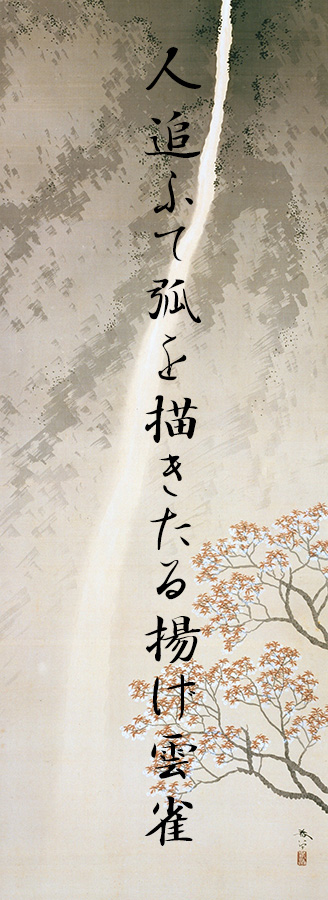 人追ふて弧を描きたる揚げ雲雀